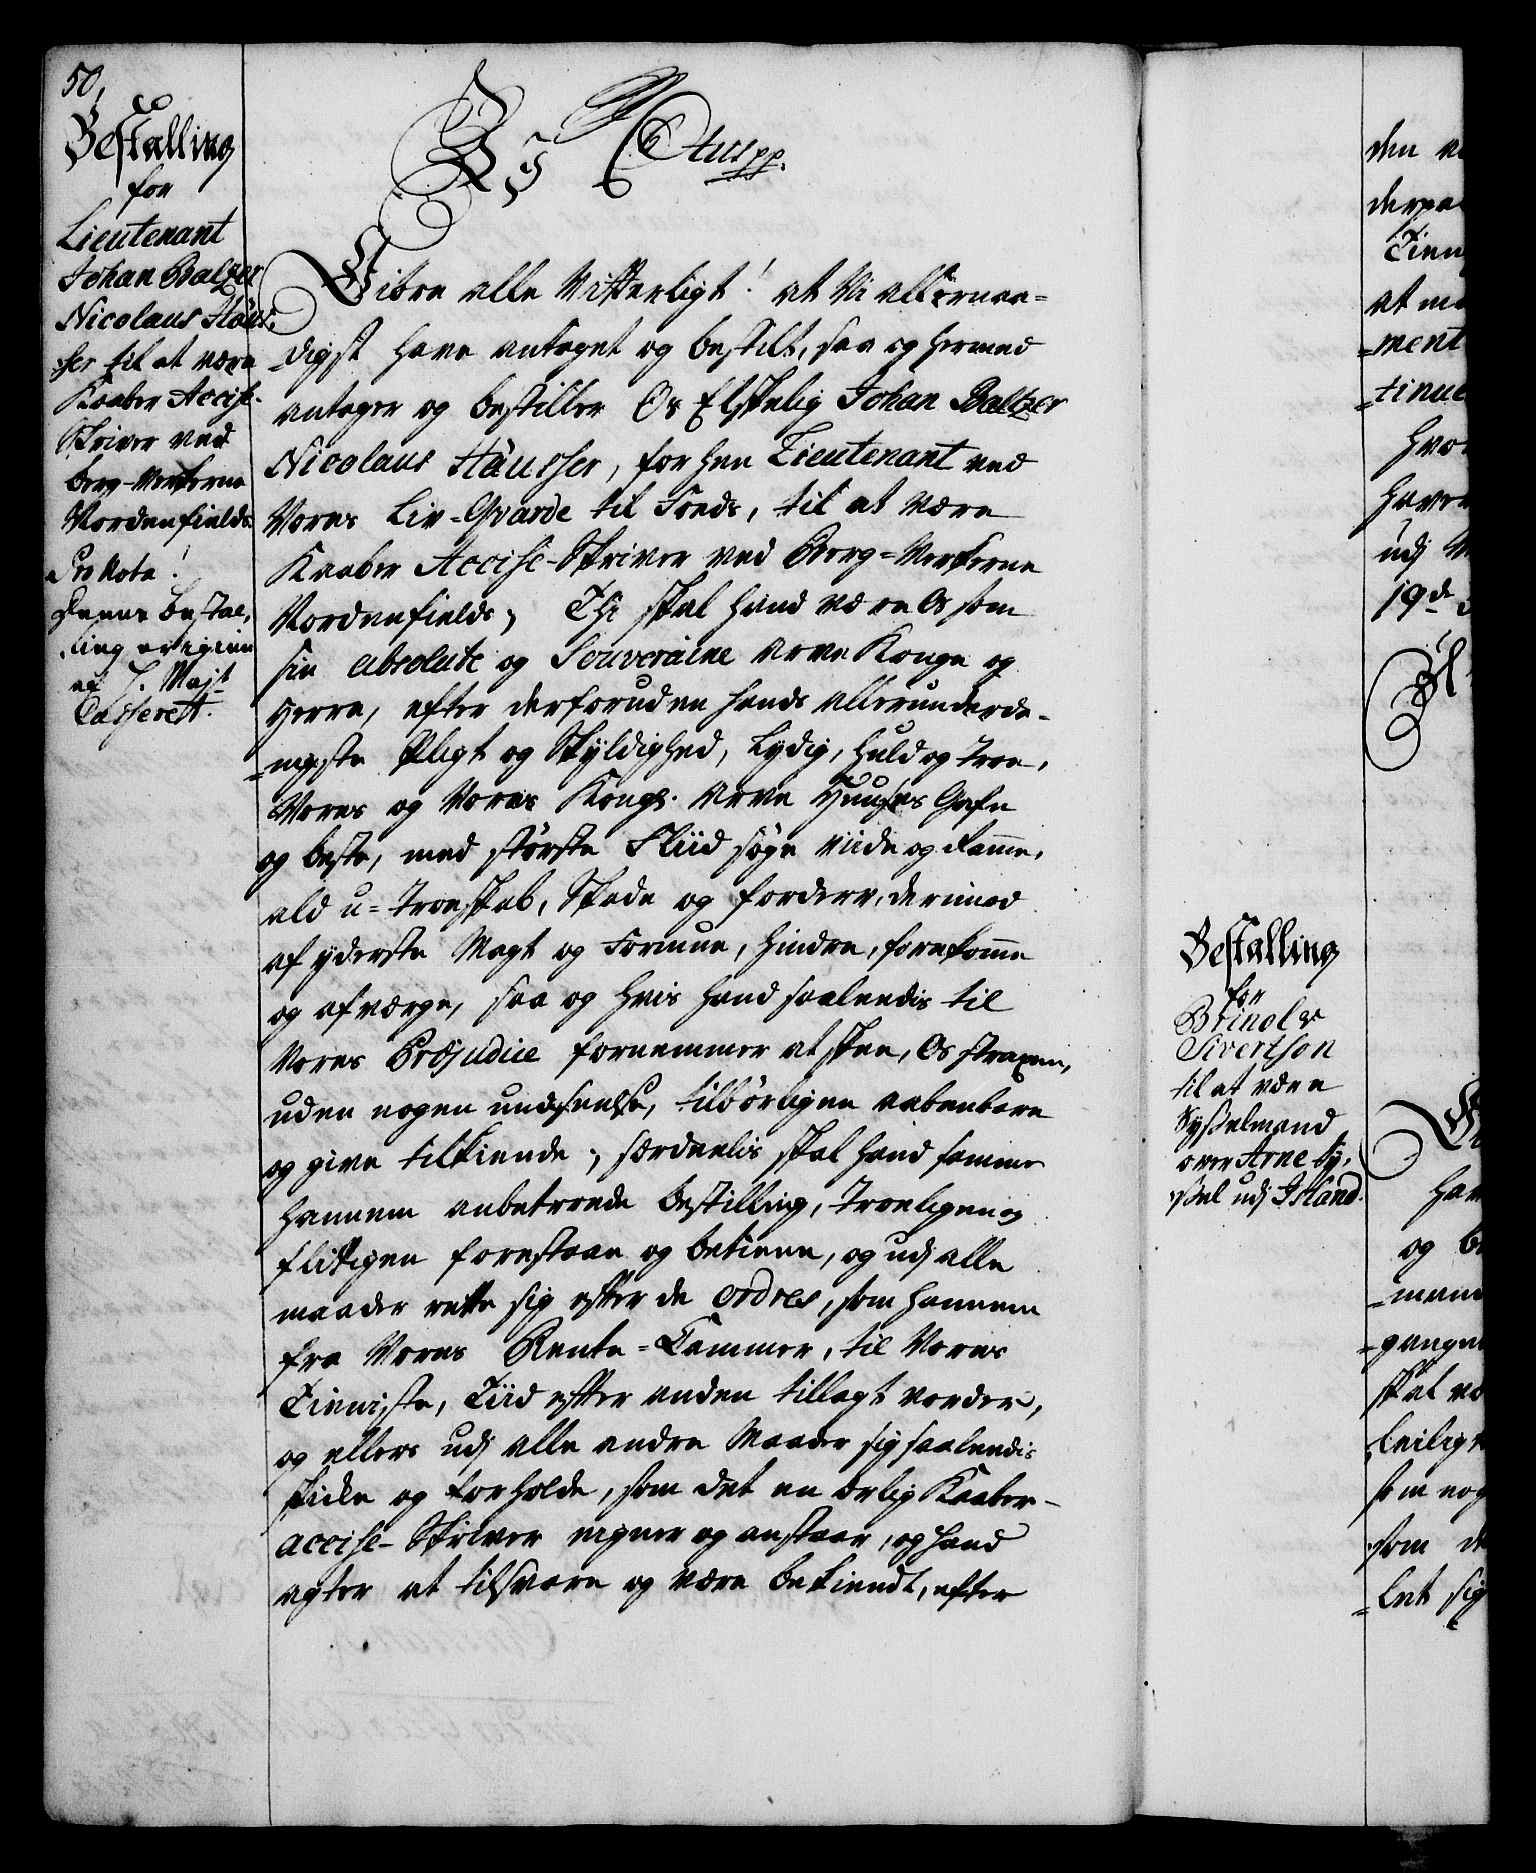 50,
Bestalling
for
Lieutenant
Johan Baltzer
Nicolaus Häus-
ser til at være
Kaaber Accise-
Skriver ved
Berg-Verkerne
Nordenfields
Nota!
Denne Bestal-
ling er igien
af H. Mayt
Casseret.
pp.
Giöre alle Vitterligt! at Vi allernaa-
digst have antaget og bestilt, saa og hermed
antager og bestiller Os Elskelig Johan Baltzer
Nicolaus Häusser, forhen Lieutenant ved
Vores Liv-Gvarde til Foeds, til at være
Kaaber Accise-Skriver ved Berg-Verkerne
Nordenfields; Thi skal hand være Os som
sin absolute og Souveraine Arve Konge og
Herre, efter derforuden hands allerunderda-
nigste Pligt og Skyldighed, Lydig, huld og troe,
Vores og Vores Kongl. Arve Huuses Gafn
og beste, med störste Fliid söge viide og ramme,
ald u-Troeskab, Skade og forderv, derimod
af yderste Magt og Formue, hindre, forekomme
og afværge, saa og hvis hand saaledis til
Vores Præjudice fornemmer at skee, Os straxen,
uden nogen undseelse, tilbörligen aabenbare
og give tilkiende; særdeelis skal hand samme
hannem anbetroede bestilling, troeligen og
flittigen forestaae og betiene, og udj alle
maader rette sig efter de ordres, som hannem
fra Vores Rente-Cammer, til Vores
Tieniste, Tiid efter anden tillagt vorder,
og ellers udj alle andre Maader sig saaledis
skicke og forholde, som det en ærlig Kaaber-
accise-Skriver eigner og anstaar, og hand
agter at tilsvare og være bekiendt, efter
Bestalling
for
Brinolv
Sivertson
til at være
Sysselmand
over Arne Sy-
ssel udj Island.
den
at
-ment
hvo
udj
19de
og
som